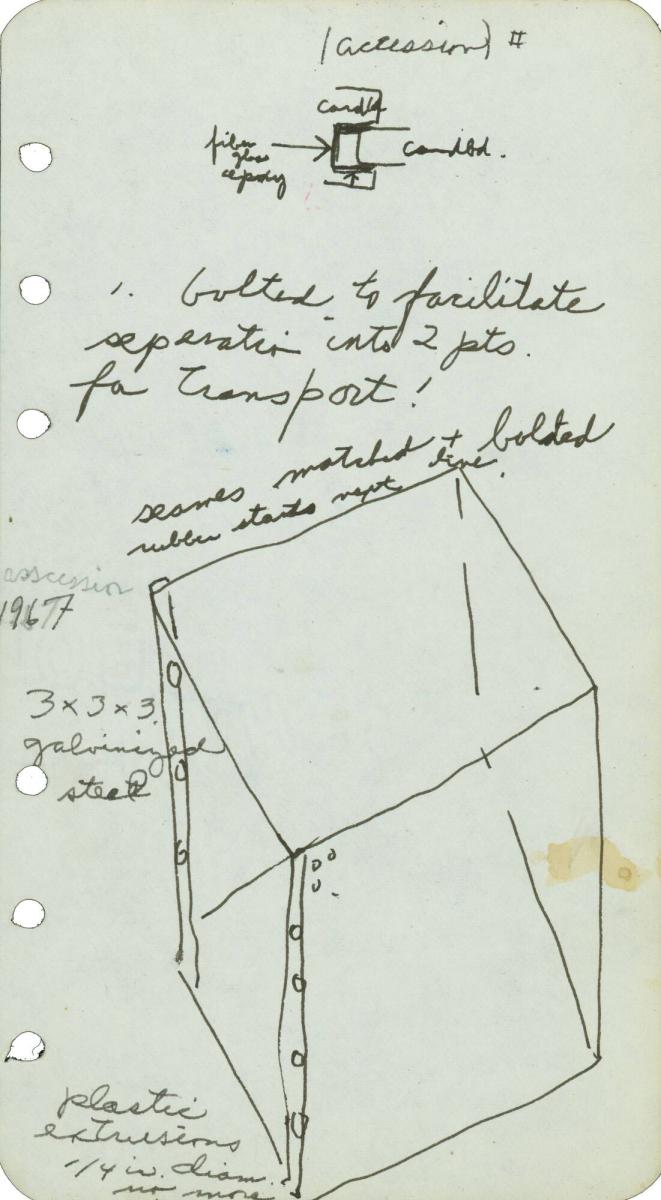 (accession) #
cardb
fiber
glass
epoxy
cardbd.
1. bolted to facilitate
seperation into 2 pts.
for Transport!
seames matched + bolted
rubber starts next line
asscession
1967
3 x 3 x 3
galvinized
steel
plastic
extrusions
1/4 in. diam.
no more